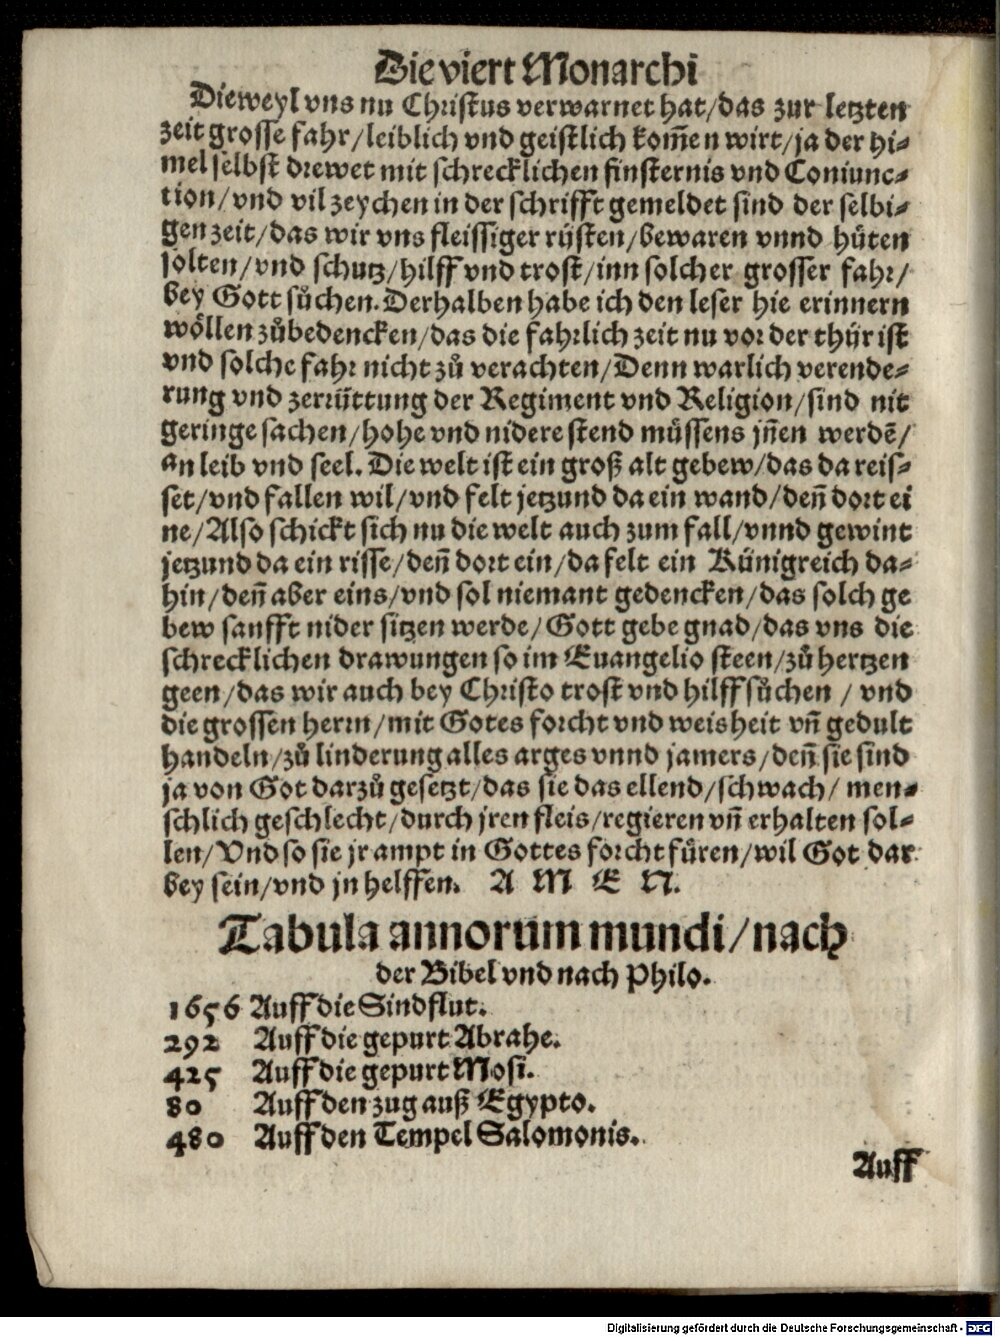 Die viert Monarchi
Dieweyl vns nu Christus verwarnet hat/das zur letzten
zeit grosse fahr/leiblich vnd geistlich kom̃en wirt/ja der hi⸗
mel selbst drewet mit schrecklichen finsternis vnd Coniunc⸗
tion/vnd vil zeychen in der schrifft gemeldet sind der selbi⸗
gen zeit/das wir vns fleissiger rüsten/bewaren vnnd hüten
solten/vnd schutz/hilff vnd trost/inn solcher grosser fahr/
bey Gott sůchen. Derhalben habe ich den leser hie erinnern
wöllen zůbedencken/das die fahrlich zeit nu vor der thür ist
vnd solche fahr nicht zů verachten/Denn warlich verende⸗
rung vnd zerrüttung der Regiment vnd Religion/sind nit
geringe sachen/hohe vnd nidere stend müssens jñen werdẽ/
an leib vnd seel. Die welt ist ein groß alt gebew/das da reis⸗
set/vnd fallen wil/vnd felt jetzund da ein wand/deñ dort ei
ne/Also schickt sich nu die welt auch zum fall/vnnd gewint
jetzund da ein risse/deñ dort ein/da felt ein Künigreich da⸗
hin/deñ aber eins/vnd sol niemant gedencken/das solch ge
bew sanfft nider sitzen werde/Gott gebe gnad/das vns die
schrecklichen drawungen so im Euangelio steen/zů hertzen
geen/das wir auch bey Christo trost vnd hilff sůchen/vnd
die grossen herrn/mit Gotes forcht vnd weisheit vñ gedult
handeln/zů linderung alles arges vnnd jamers/deñ sie sind
ja von Got darzů gesetzt/das sie das ellend/schwach/men⸗
schlich geschlecht/durch jren fleis/regieren vñ erhalten sol⸗
len/Vnd so sie jr ampt in Gottes forcht füren/wil Got dar
bey sein/vnd jn helffen. A M E N.
Tabula annorum mundi/nach
der Bibel vnd nach Philo.
1656 Auff die Sindflut.
292 Auff die gepurt Abrahe.
425 Auff die gepurt Mosi.
80 Auff den zug auß Egypto.
480 Auff den Tempel Salomonis.
Auff
Digitalisierung gefördert durch die Deutsche Forschungsgemeinschaft - DFG